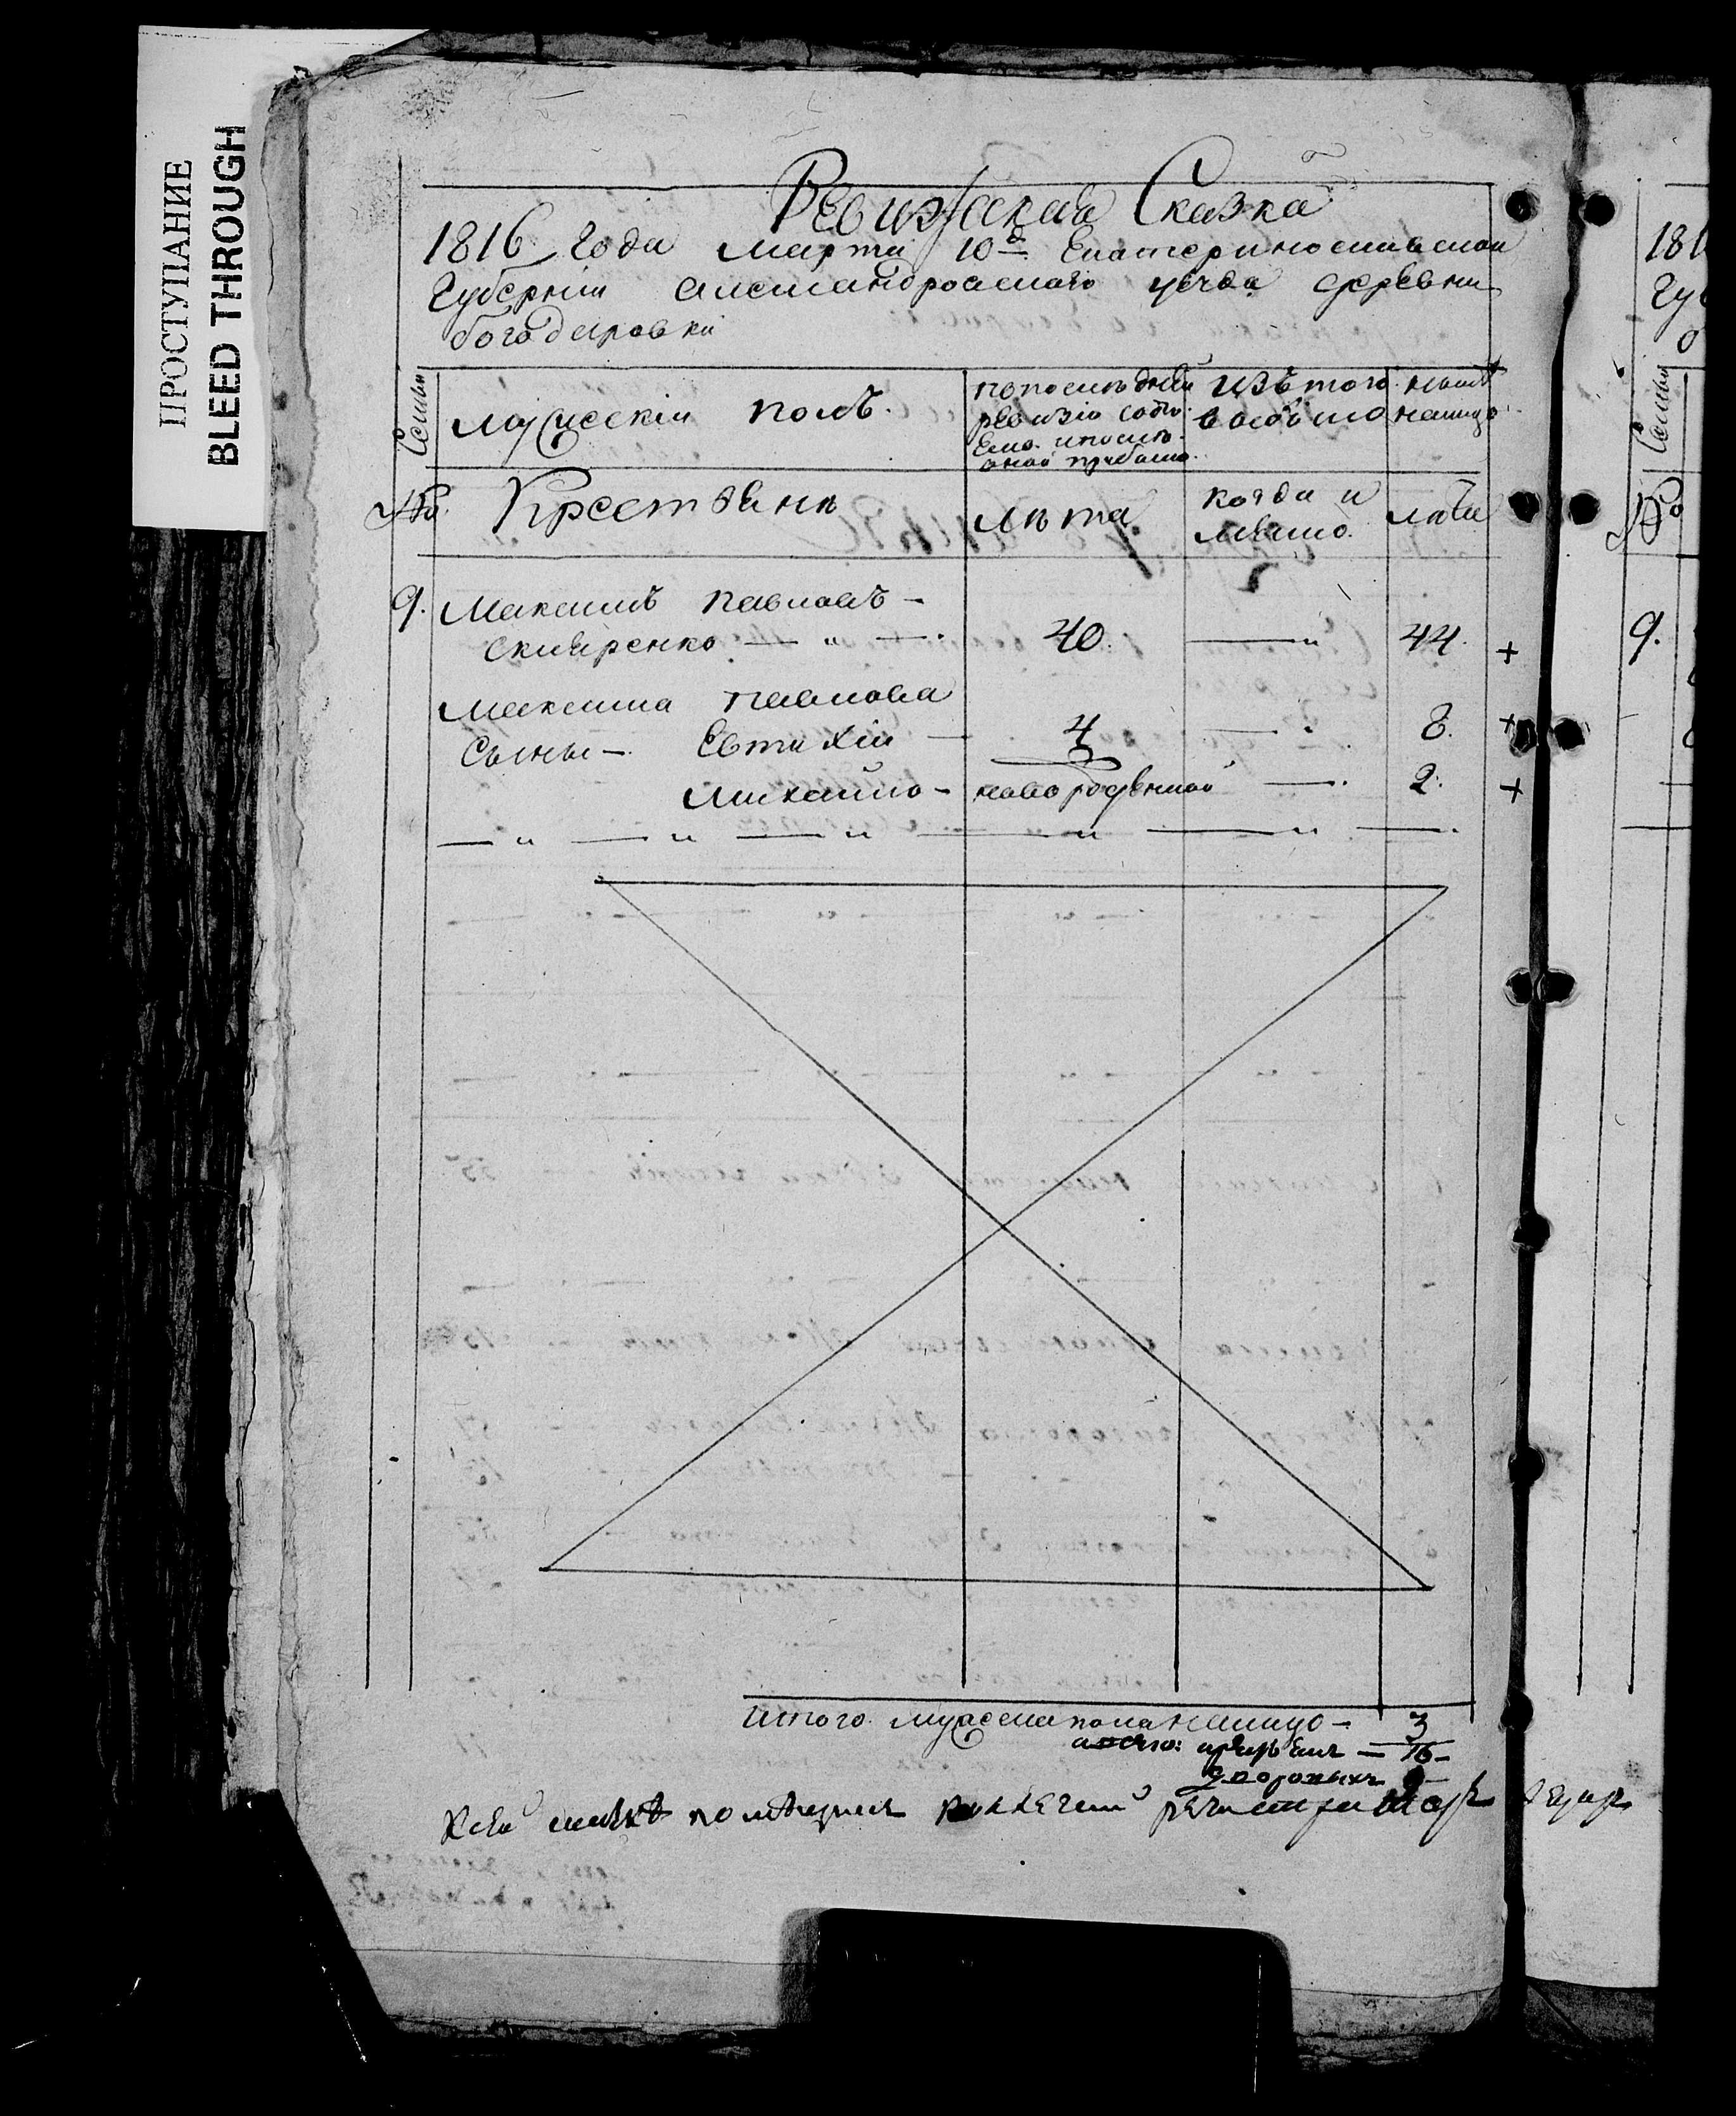 ПРОСТУПАНИЕ
BLEED THROUGH
Ревижская Сказка
1816 года марта 10д Екатеринославской
Губернии Александровского уезда деревни
богодаровки
Семьи
мужескiй полъ.
по последней
ревизiи состо
яло и после
оной прибыло.
изъ того
выбыло
ныне
налицо
№
Крестьяне
лета
когда и
именно.
лета
9. Максимъ Павловъ —
Скляренко — „ — 40. — „ 44. +
Максима Павлова
Сыны — Евтихiй — 4 — 8. +
Михайло — новорожденной — 2. +
Итого мужеска пола налицо — 3
а всего: — 16 —
дворовыхъ
помещикъ регистраторъ
181
Гу
Семьи
№
9.